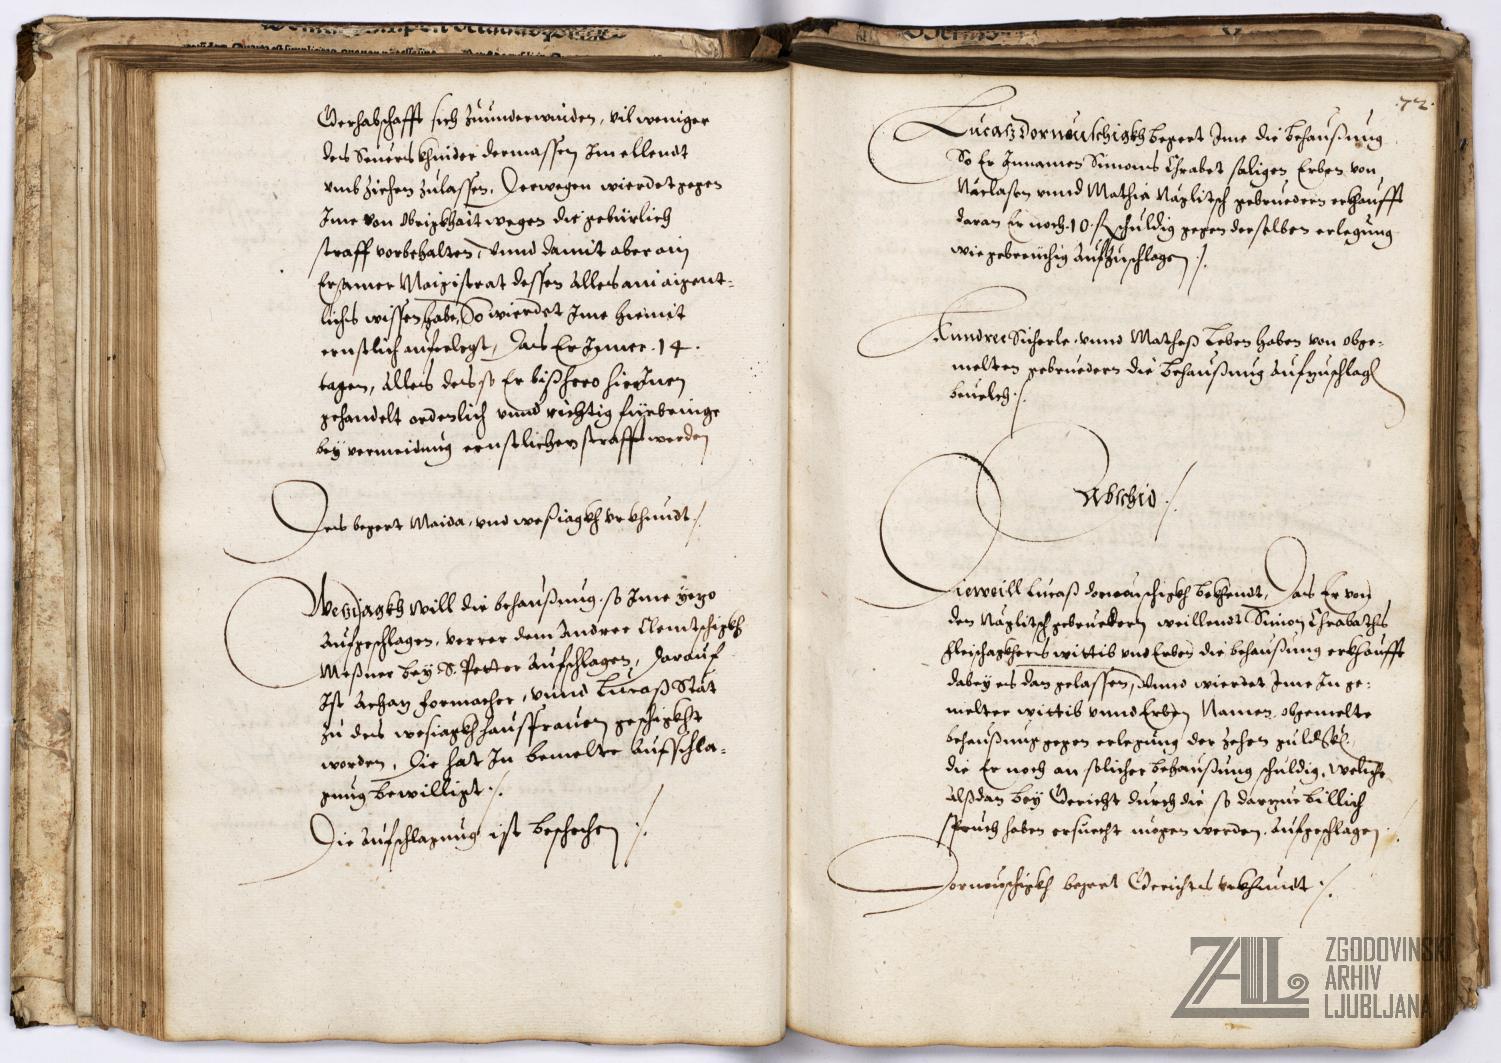 Gerhabschafft sich zuunderwinden, vil weniger
des Seueris khinder dermassen Im ellendt
umbziehen zulassen, Derwegen wierdet gegen
Ime von Obrigkhait wegen die gebürlich
straff vorbehalten, Unnd damit aber ain
Ersamer Magistrat dessen Alles ain aigent-
lichs wissen habe, So wierdet Ime hiemit
ernstlich auferlegt, Das Er Inner .14.
tagen, Alles des so Er bißheer hierinen
gehandelt ordenlich unnd richtig fürbringe
bey vermeidung ernstlicher straff werden
Des begert Maida, und weßiagkh urkhundt ./.
Wesiagkh will die behaußung, so Ime yezo
Aufgeschlagen, verrer dem Andree Clemtschigkh
Meßner bey S. Petter Aufschlagen, Darauf
Ist Achaz Formacher, unnd Lucaß Stat
zu des wesiagkh haußfrauen geschigkht
worden, Die hat In bemelte Aufschla-
gung bewilligt ./.
Die Aufschlagung ist beschehen ./.
.72.
Lucaß Dorneuschigkh begert Ime die behaußung
So Er Innamen Simons Chrabet säligen Erben von
Näclasen unnd Mathia Näglitsch gebruedern erkhaufft
daran Er noch .10. f schuldig gegen derselben erlegung
wie gebreuchig Aufzuschlagen ./.
Anndree Sicherle, unnd Matheß Leben haben von obge-
melten gebruedern die behaußung Aufzuschlag
beuelch ./.
Abschid ./.
Dieweill Lucaß dorneuschigkh bekhendt, Das Er von
den Näglitsch gebruedern weillendt Simon Chrabaths
fleischagkhers wittib und Erben die behaußung erkhaufft
dabey es dan gelassen, Unnd wierdet Ime In ge-
melter wittib unnd Erben Namen obgemelte
behaußung gegen erlegung der zehen guld
die Er noch an solicher behaußung schuldig, weliche
Alßdan bey Gericht durch die so darzue billich
spruch haben ersuecht mögen werden, Aufgeschlagen
Dorneuschigkh begert Gerichts urkhundt ./.
ZAL
ZGODOVINSKI
ARHIV
LJUBLJANA